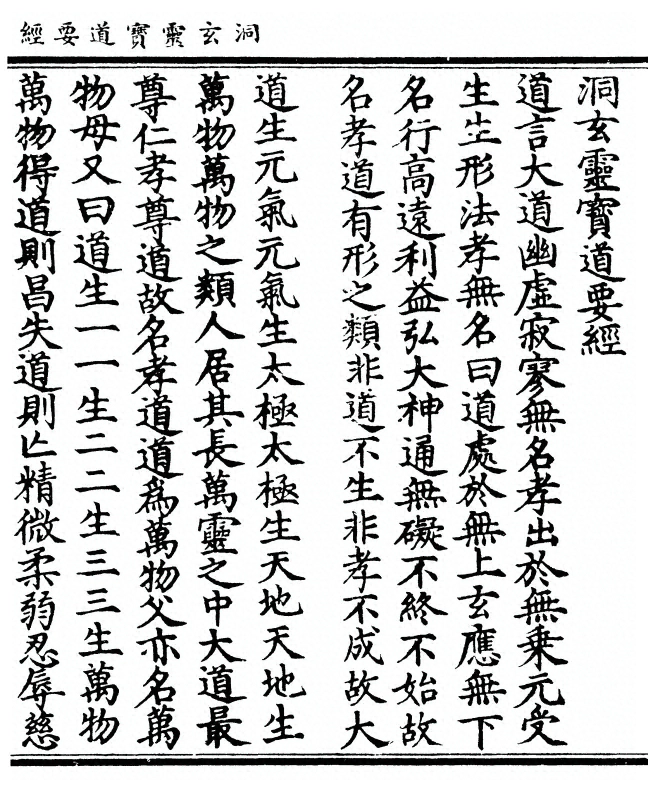 洞玄靈寶道要經
洞玄靈寶道要經
道言大道幽虛寂寥無名孝出於無乗元受
生生形法孝無名曰道處於無上玄應無下
名行高遠利益弘大神通無礙不終不始故
名孝道有形之類非道不生非孝不成故大
道生元氣元氣生太極太極生天地天地生
萬物萬物之類人居其長萬靈之中大道最
尊仁孝尊道故名孝道道爲萬物父亦名萬
物母又曰道生一一生二二生三三生萬物
萬物得道則昌失道則亾精微柔弱忍辱慈